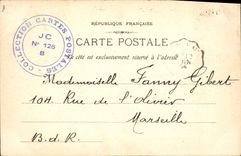 RÉPUBLIQUE FRANÇAISE
CARTE POSTALE
Ce côté est exclusivement réservé à l'adresse
COLLECTION CARTES POSTALES
JC
N° 126
B
Mademoiselle Fanny Gibert
10H Rue de l'Olivier
Marseille
B.d.R.